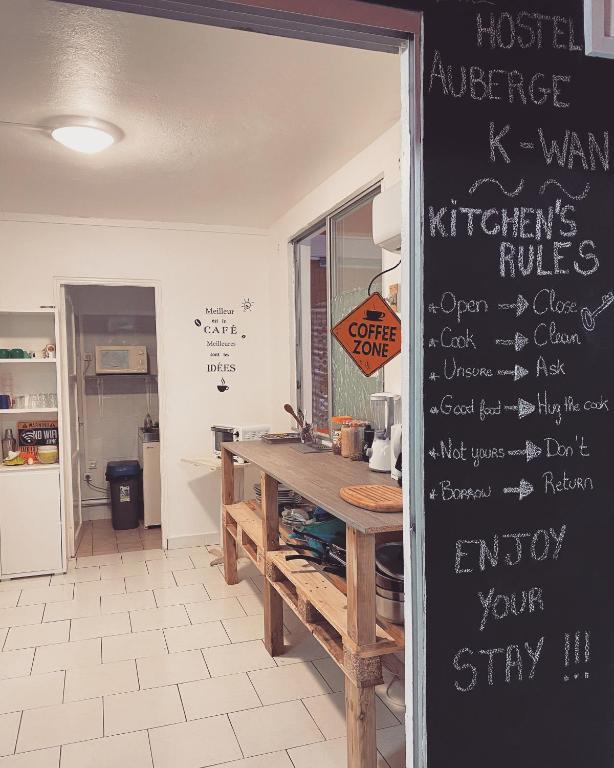 HOSTEL
AUBERGE
K-WAN
KITCHEN'S
RULES
* Open → Close
* Cook → Clean
* Unsure → Ask
* Good food → Hug the cook
* Not yours → Don't
* Borrow → Return
ENJOY
YOUR
STAY !!!
COFFEE
ZONE
Meilleur
est le
CAFÉ
Meilleures
sont les
IDÉES
WARNING
NO WIFI